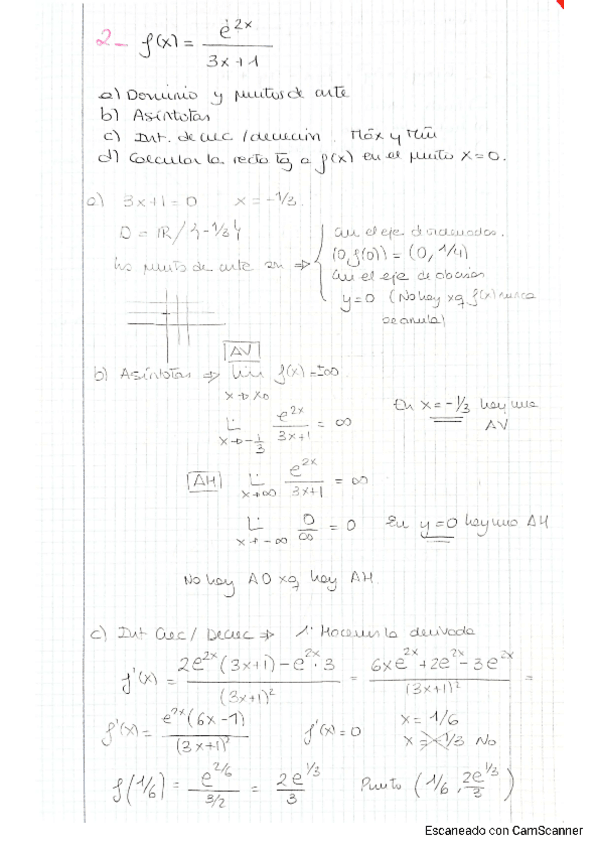 2- f(x) = e^2x / 3x+1
a) Dominio y puntos de corte
b) Asíntotas
c) Int. de crec / decrección. Máx y Mín
d) Calcular la recta tg a f(x) en el punto x=0.
a) 3x+1=0 x=-1/3.
D = ℝ/{-1/3}
Los puntos de corte son ⇒
Con el eje de ordenadas.
(0, f(0)) = (0, 1/4)
Con el eje de abcisas
y=0 (No hay xq f(x) nunca
se anula)
b) Asíntotas ⇒ AV lim x→x0 f(x) = ±∞
Li x→-1/3 e^2x / 3x+1 = ∞ En x=-1/3 hay una
AV
AH Li x→∞ e^2x / 3x+1 = ∞
Li x→-∞ 0/∞ = 0 En y=0 hay una AH
No hay AO xq hay AH.
c) Int Crec / Decrec ⇒ 1º Hacemos la derivada
f'(x) = 2e^2x (3x+1) - e^2x · 3 / (3x+1)^2 = 6xe^2x + 2e^2x - 3e^2x / (3x+1)^2 =
f'(x) = e^2x (6x-1) / (3x+1)^2 f'(x)=0 x = 1/6
x = -1/3 No
f(1/6) = e^2/6 / 3/2 = 2e^1/3 / 3 Punto (1/6, 2e^1/3 / 3)
Escaneado con CamScanner